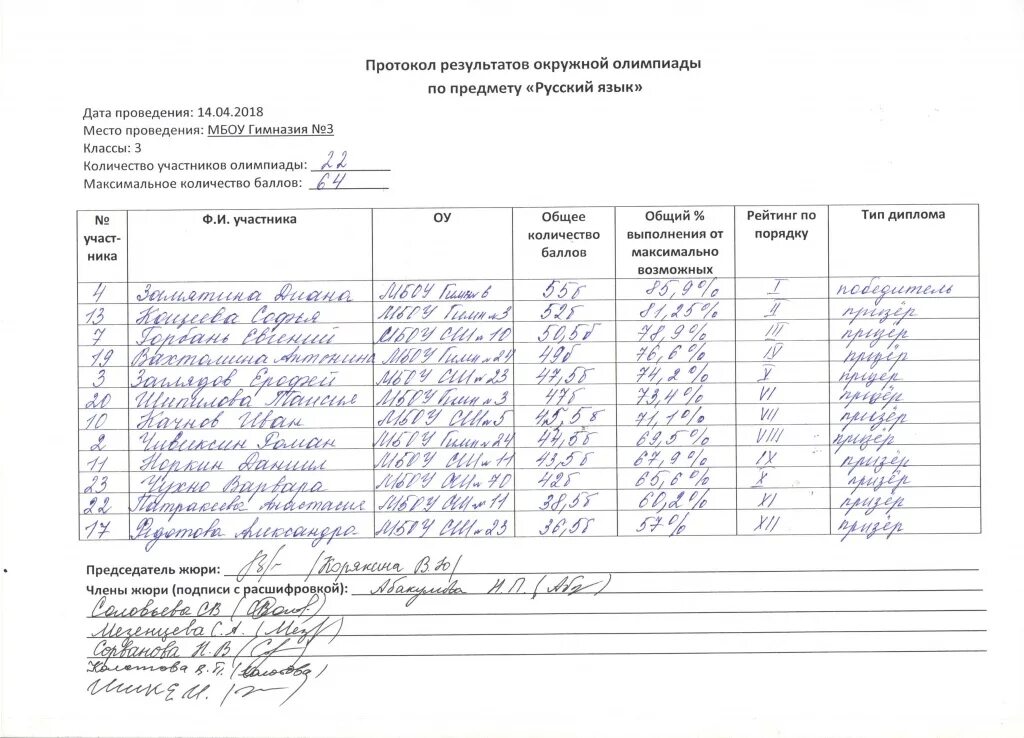 Протокол результатов окружной олимпиады
по предмету «Русский язык»
Дата проведения: 14.04.2018
Место проведения: МБОУ Гимназия №3
Классы: 3
Количество участников олимпиады: 22
Максимальное количество баллов: 64
№ участ-ника Ф.И. участника ОУ Общее количество баллов Общий % выполнения от максимально возможных Рейтинг по порядку Тип диплома
4 Замятина Диана МБОУ Гимн 6 55б 85,9% I победитель
13 Кощеева Софья МБОУ Гимн №3 52б 81,25% II призёр
7 Горбань Евгений МБОУ СШ №10 50,5б 78,9% III призёр
19 Вахтомина Антонина МБОУ Гимн №24 49б 76,6% IV призёр
3 Заглядов Ерофей МБОУ СШ №23 47,5б 74,2% V призёр
20 Шипилова Таисия МБОУ Гимн №3 47б 73,4% VI призёр
10 Качнов Иван МБОУ СШ №5 45,5б 71,1% VII призёр
2 Чивиксин Роман МБОУ Гимн №24 44,5б 69,5% VIII призёр
11 Норкин Даниил МБОУ СШ №11 43,5б 67,9% IX призёр
23 Чухно Варвара МБОУ СШ №70 42б 65,6% X призёр
22 Патракеева Анастасия МБОУ СШ №11 38,5б 60,2% XI призёр
17 Федотова Александра МБОУ СШ №23 36,5б 57% XII призёр
Председатель жюри: (Корякина В Ю)
Члены жюри (подписи с расшифровкой): Абакумова Н.П.
Соловьева СВ
Мезенцева С.А.
Сорванова Н.В
Колотова В.П.